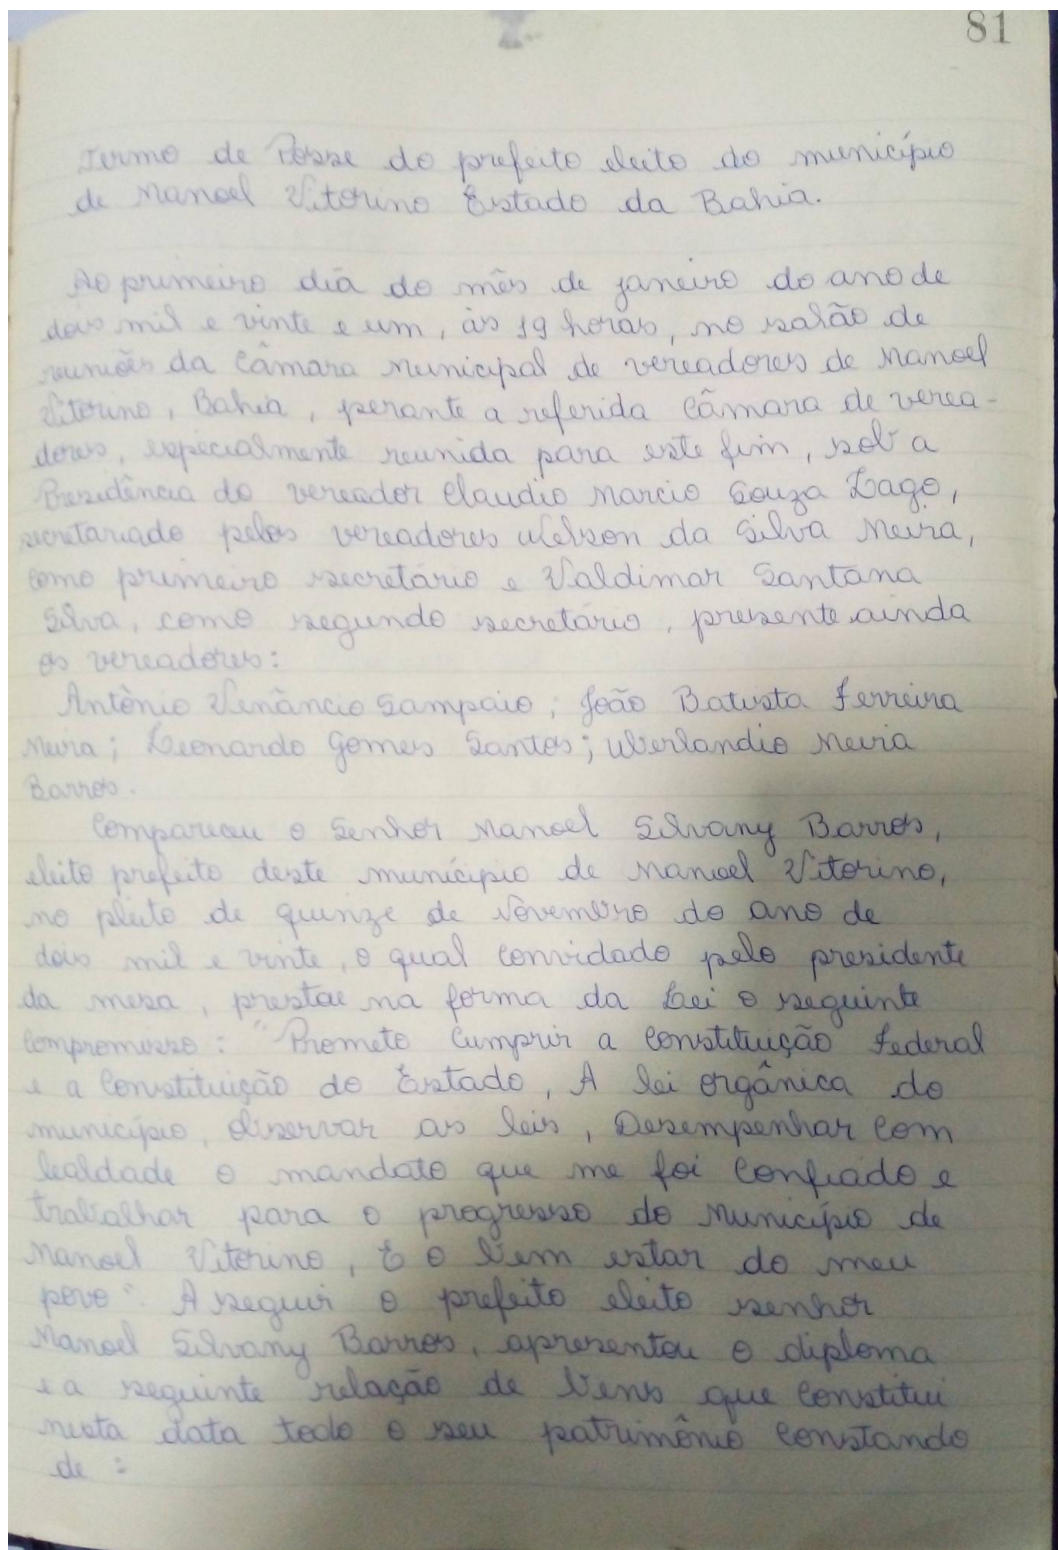 81
Termo de Posse do prefeito eleito do município
de Manoel Vitorino Estado da Bahia.
Ao primeiro dia do mês de janeiro do ano de
dois mil e vinte e um, às 19 horas, no salão de
reuniões da Câmara Municipal de vereadores de Manoel
Vitorino, Bahia, perante a referida Câmara de verea-
dores, especialmente reunida para este fim, sob a
Presidência do vereador Claudio Marcio Souza Lago,
secretariado pelos vereadores Kelson da Silva Meira,
como primeiro secretário e Valdimar Santana
Silva, como segundo secretário, presente ainda
os vereadores:
Antônio Venâncio Sampaio; João Batista Ferreira
Meira; Leonardo Gomes Santos; Uberlandio Meira
Barros.
Compareceu o Senhor Manoel Silvany Barros,
eleito prefeito deste município de Manoel Vitorino,
no pleito de quinze de Novembro do ano de
dois mil e vinte, o qual convidado pelo presidente
da mesa, prestou na forma da Lei o seguinte
compromisso: "Prometo Cumprir a Constituição Federal
e a Constituição do Estado, A lei orgânica do
município, observar as leis, Desempenhar com
lealdade o mandato que me foi confiado e
trabalhar para o progresso do Município de
Manoel Vitorino, E o bem estar do meu
povo". A seguir o prefeito eleito senhor
Manoel Silvany Barros, apresentou o diploma
e a seguinte relação de bens que constitui
nesta data todo o seu patrimônio constando
de :